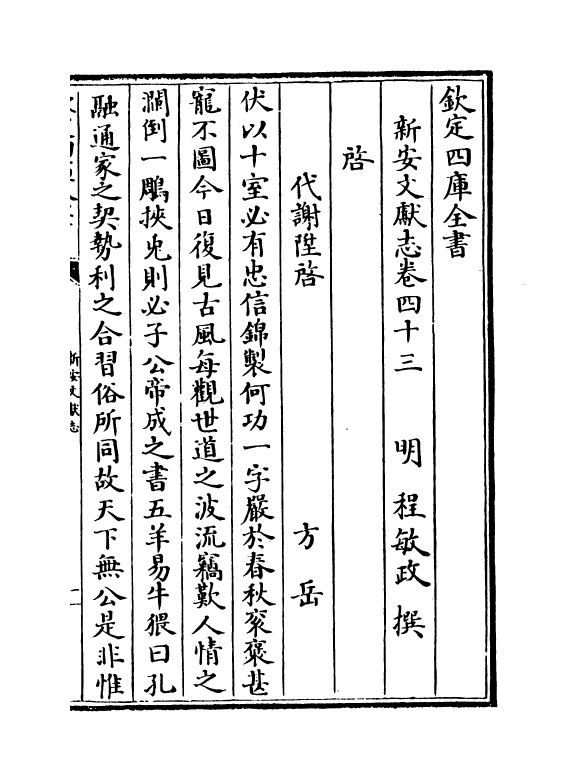 欽定四庫全書
新安文獻志卷四十三　明　程敏政　撰
啓
代謝陞啓　方岳
伏以十室必有忠信錦製何功一字嚴於春秋衮襃甚
寵不圖今日復見古風每觀世道之波流竊歎人情之
濶倒一鵰挾兎則必子公帝成之書五羊易牛猥曰孔
融通家之契勢利之合習俗所同故天下無公是非惟
新安文獻志